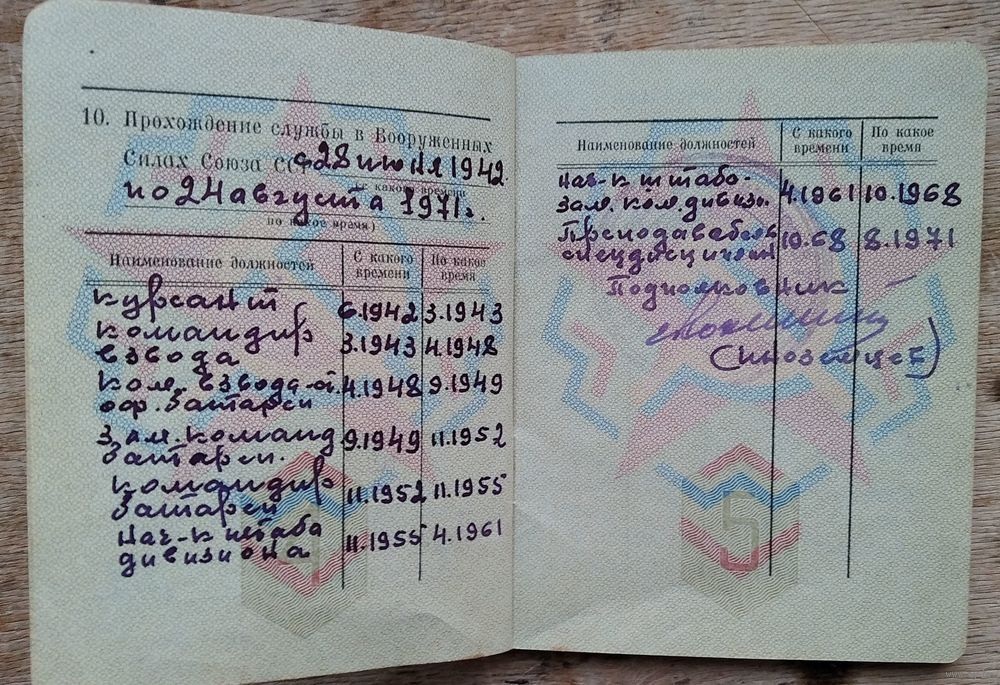 10. Прохождение службы в Вооруженных
Силах Союза ССР с 28 июля 1942
(с какого времени
по 24 августа 1971г.
по какое время)
Наименование должностей С какого времени По какое время
курсант 6.1942 3.1943
командир
взвода 3.1943 4.1948
ком. взвода-ст.
оф. батареи 4.1948 9.1949
зам. команд.
батареи. 9.1949 11.1952
командир
батареи 11.1952 11.1955
нач-к штаба
дивизиона 11.1955 4.1961
4
Наименование должностей С какого времени По какое время
нач-к штаба-
зам. ком. дивизи. 4.1961 10.1968
Преподаватель
спецдисциплин 10.68 8.1971
Подполковник
(Иноземцев)
5